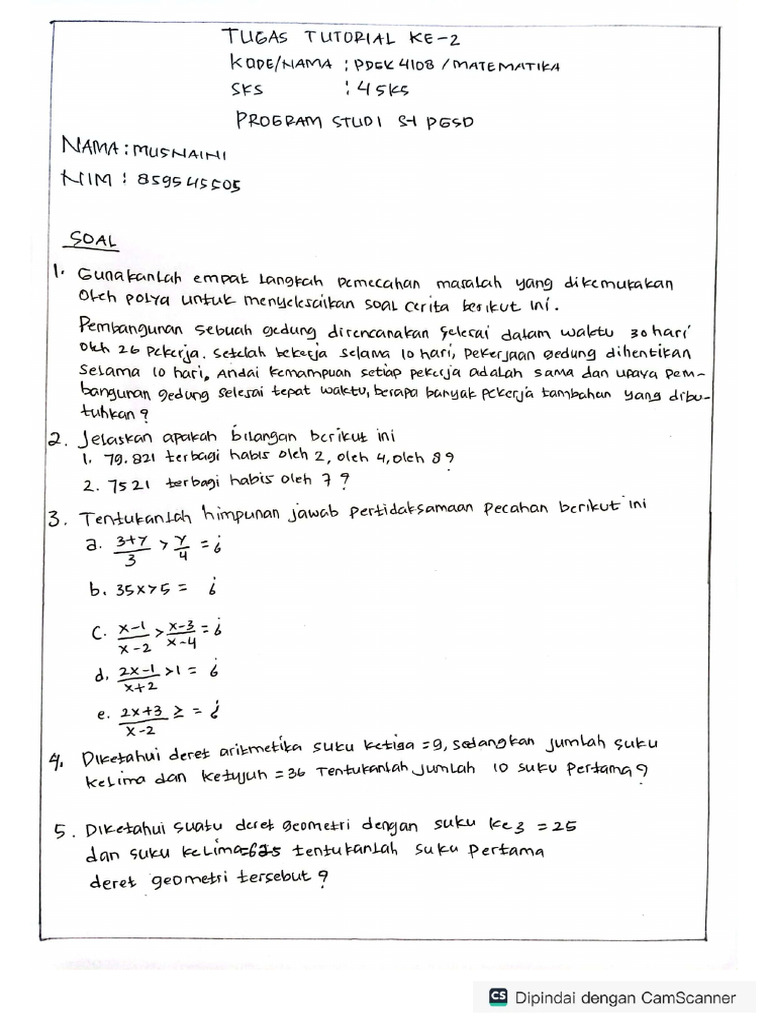 TUGAS TUTORIAL KE-2
KODE/NAMA : PDGK 4108 / MATEMATIKA
SKS : 4 SKS
PROGRAM STUDI S1 PGSD
NAMA : MUSNAINI
NIM : 859545505
SOAL
1. Gunakanlah empat langkah pemecahan masalah yang dikemukakan
oleh polya untuk menyelesaikan soal cerita berikut ini.
Pembangunan sebuah gedung direncanakan selesai dalam waktu 30 hari
oleh 26 pekerja. Setelah bekerja selama 10 hari, pekerjaan gedung dihentikan
selama 10 hari, Andai kemampuan setiap pekerja adalah sama dan upaya pem-
bangunan gedung selesai tepat waktu, berapa banyak pekerja tambahan yang dibu-
tuhkan ?
2. Jelaskan apakah bilangan berikut ini
1. 79.821 terbagi habis oleh 2, oleh 4, oleh 8 ?
2. 7521 terbagi habis oleh 7 ?
3. Tentukanlah himpunan jawab pertidaksamaan pecahan berikut ini
a. 3+y/3 > y/4 = ¿
b. 35x>5 = ¿
c. x-1/x-2 > x-3/x-4 = ¿
d. 2x-1/x+2 >1 = ¿
e. 2x+3/x-2 ≥ = ¿
4. Diketahui deret aritmetika suku ketiga = 9, sedangkan jumlah suku
kelima dan ketujuh = 36 Tentukanlah jumlah 10 suku pertama ?
5. Diketahui suatu deret geometri dengan suku ke 3 = 25
dan suku kelima=625 tentukanlah suku pertama
deret geometri tersebut ?
CS Dipindai dengan CamScanner